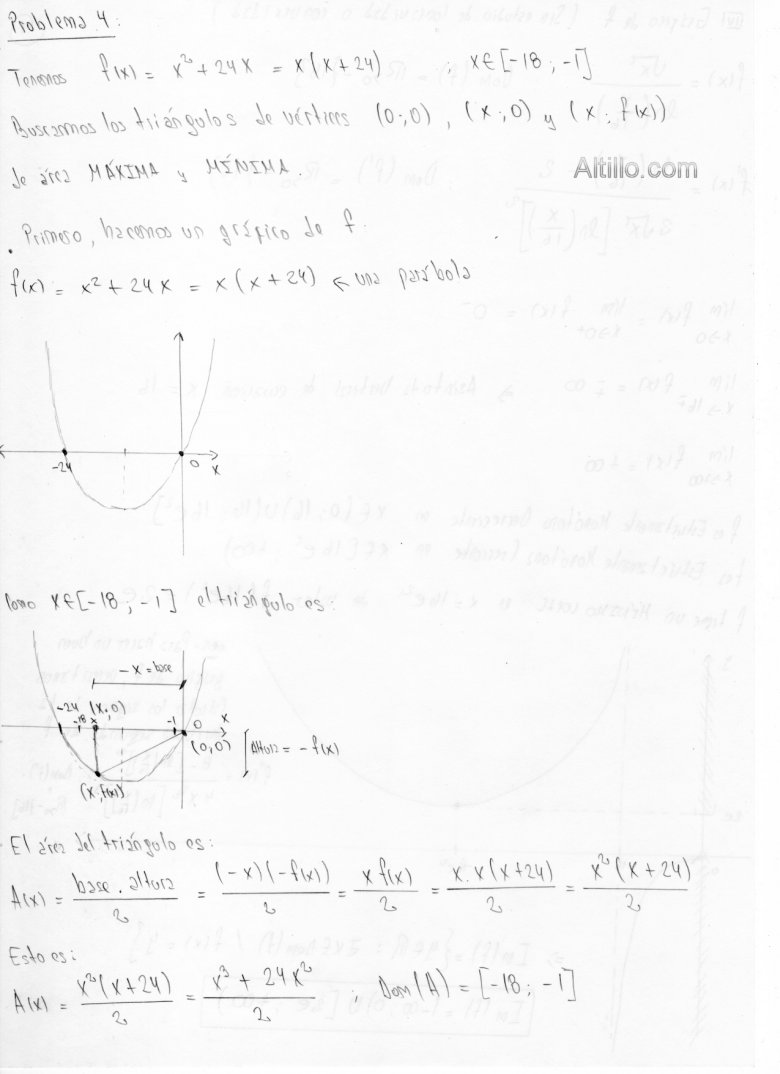 Problema 4:
Tenemos f(x) = x² + 24x = x(x+24) , x∈[-18 ; -1]
Buscamos los triángulos de vértices (0;0) , (x;0) y (x ; f(x))
de área MÁXIMA y MÍNIMA.
Altillo.com
. Primero, hacemos un gráfico de f:
f(x) = x² + 24x = x(x+24) ← una parábola
-24 0 x
Como x∈[-18 ; -1] el triángulo es:
-x = base
-24 (x;0)
-18 x -1 0 x
(0;0) Altura = -f(x)
(x;f(x))
El área del triángulo es:
A(x) = base . altura / 2 = (-x)(-f(x)) / 2 = x f(x) / 2 = x.x(x+24) / 2 = x²(x+24) / 2
Esto es:
A(x) = x²(x+24) / 2 = x³ + 24x² / 2 ; Dom(A) = [-18 ; -1]